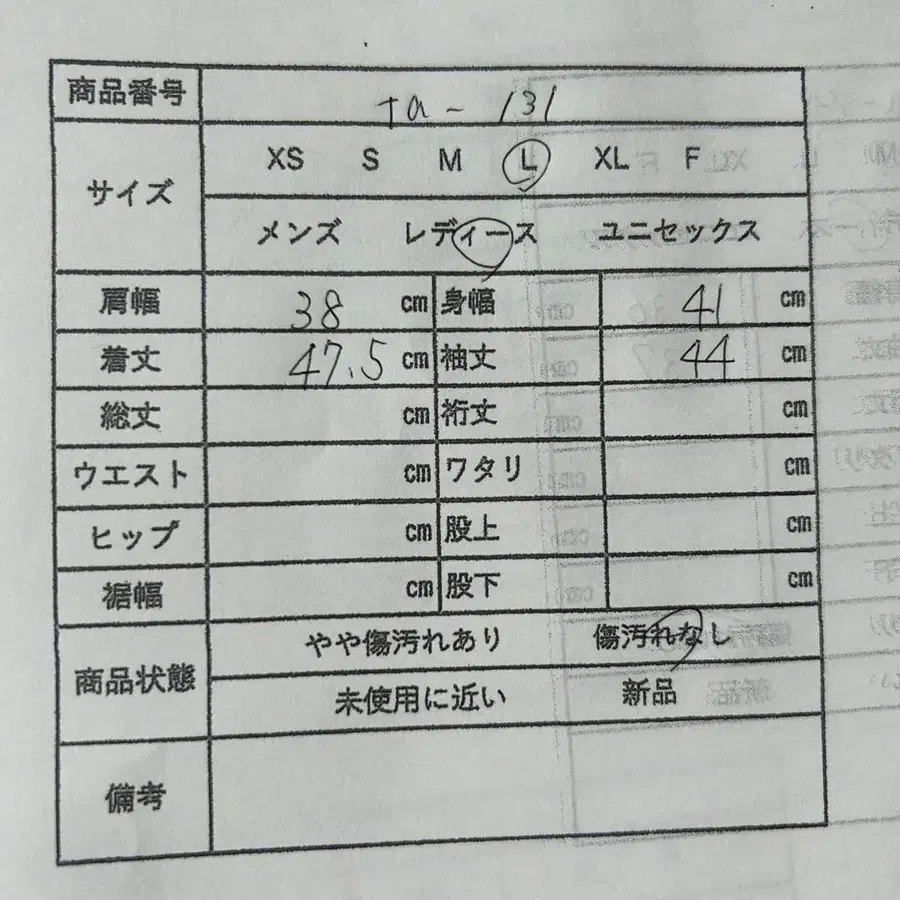 商品番号 ta - 131
サイズ XS S M L XL F
メンズ レディース ユニセックス
肩幅 38 cm 身幅 41 cm
着丈 47.5 cm 袖丈 44 cm
総丈 cm 裄丈 cm
ウエスト cm ワタリ cm
ヒップ cm 股上 cm
裾幅 cm 股下 cm
商品状態 やや傷汚れあり 傷汚れなし
未使用に近い 新品
備考